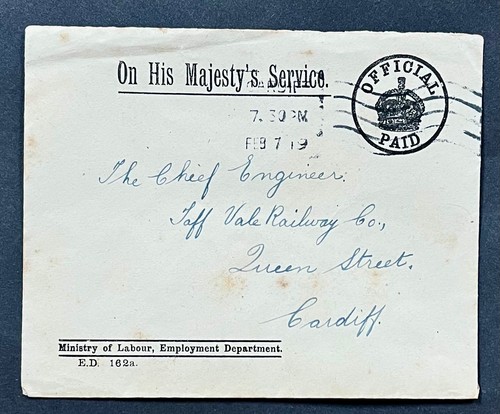 On His Majesty's Service.
OFFICIAL
PAID
7.30PM
FEB 7 19
The Chief Engineer.
Taff Vale Railway Co.,
Queen Street.
Cardiff.
Ministry of Labour, Employment Department.
E.D. 162a.